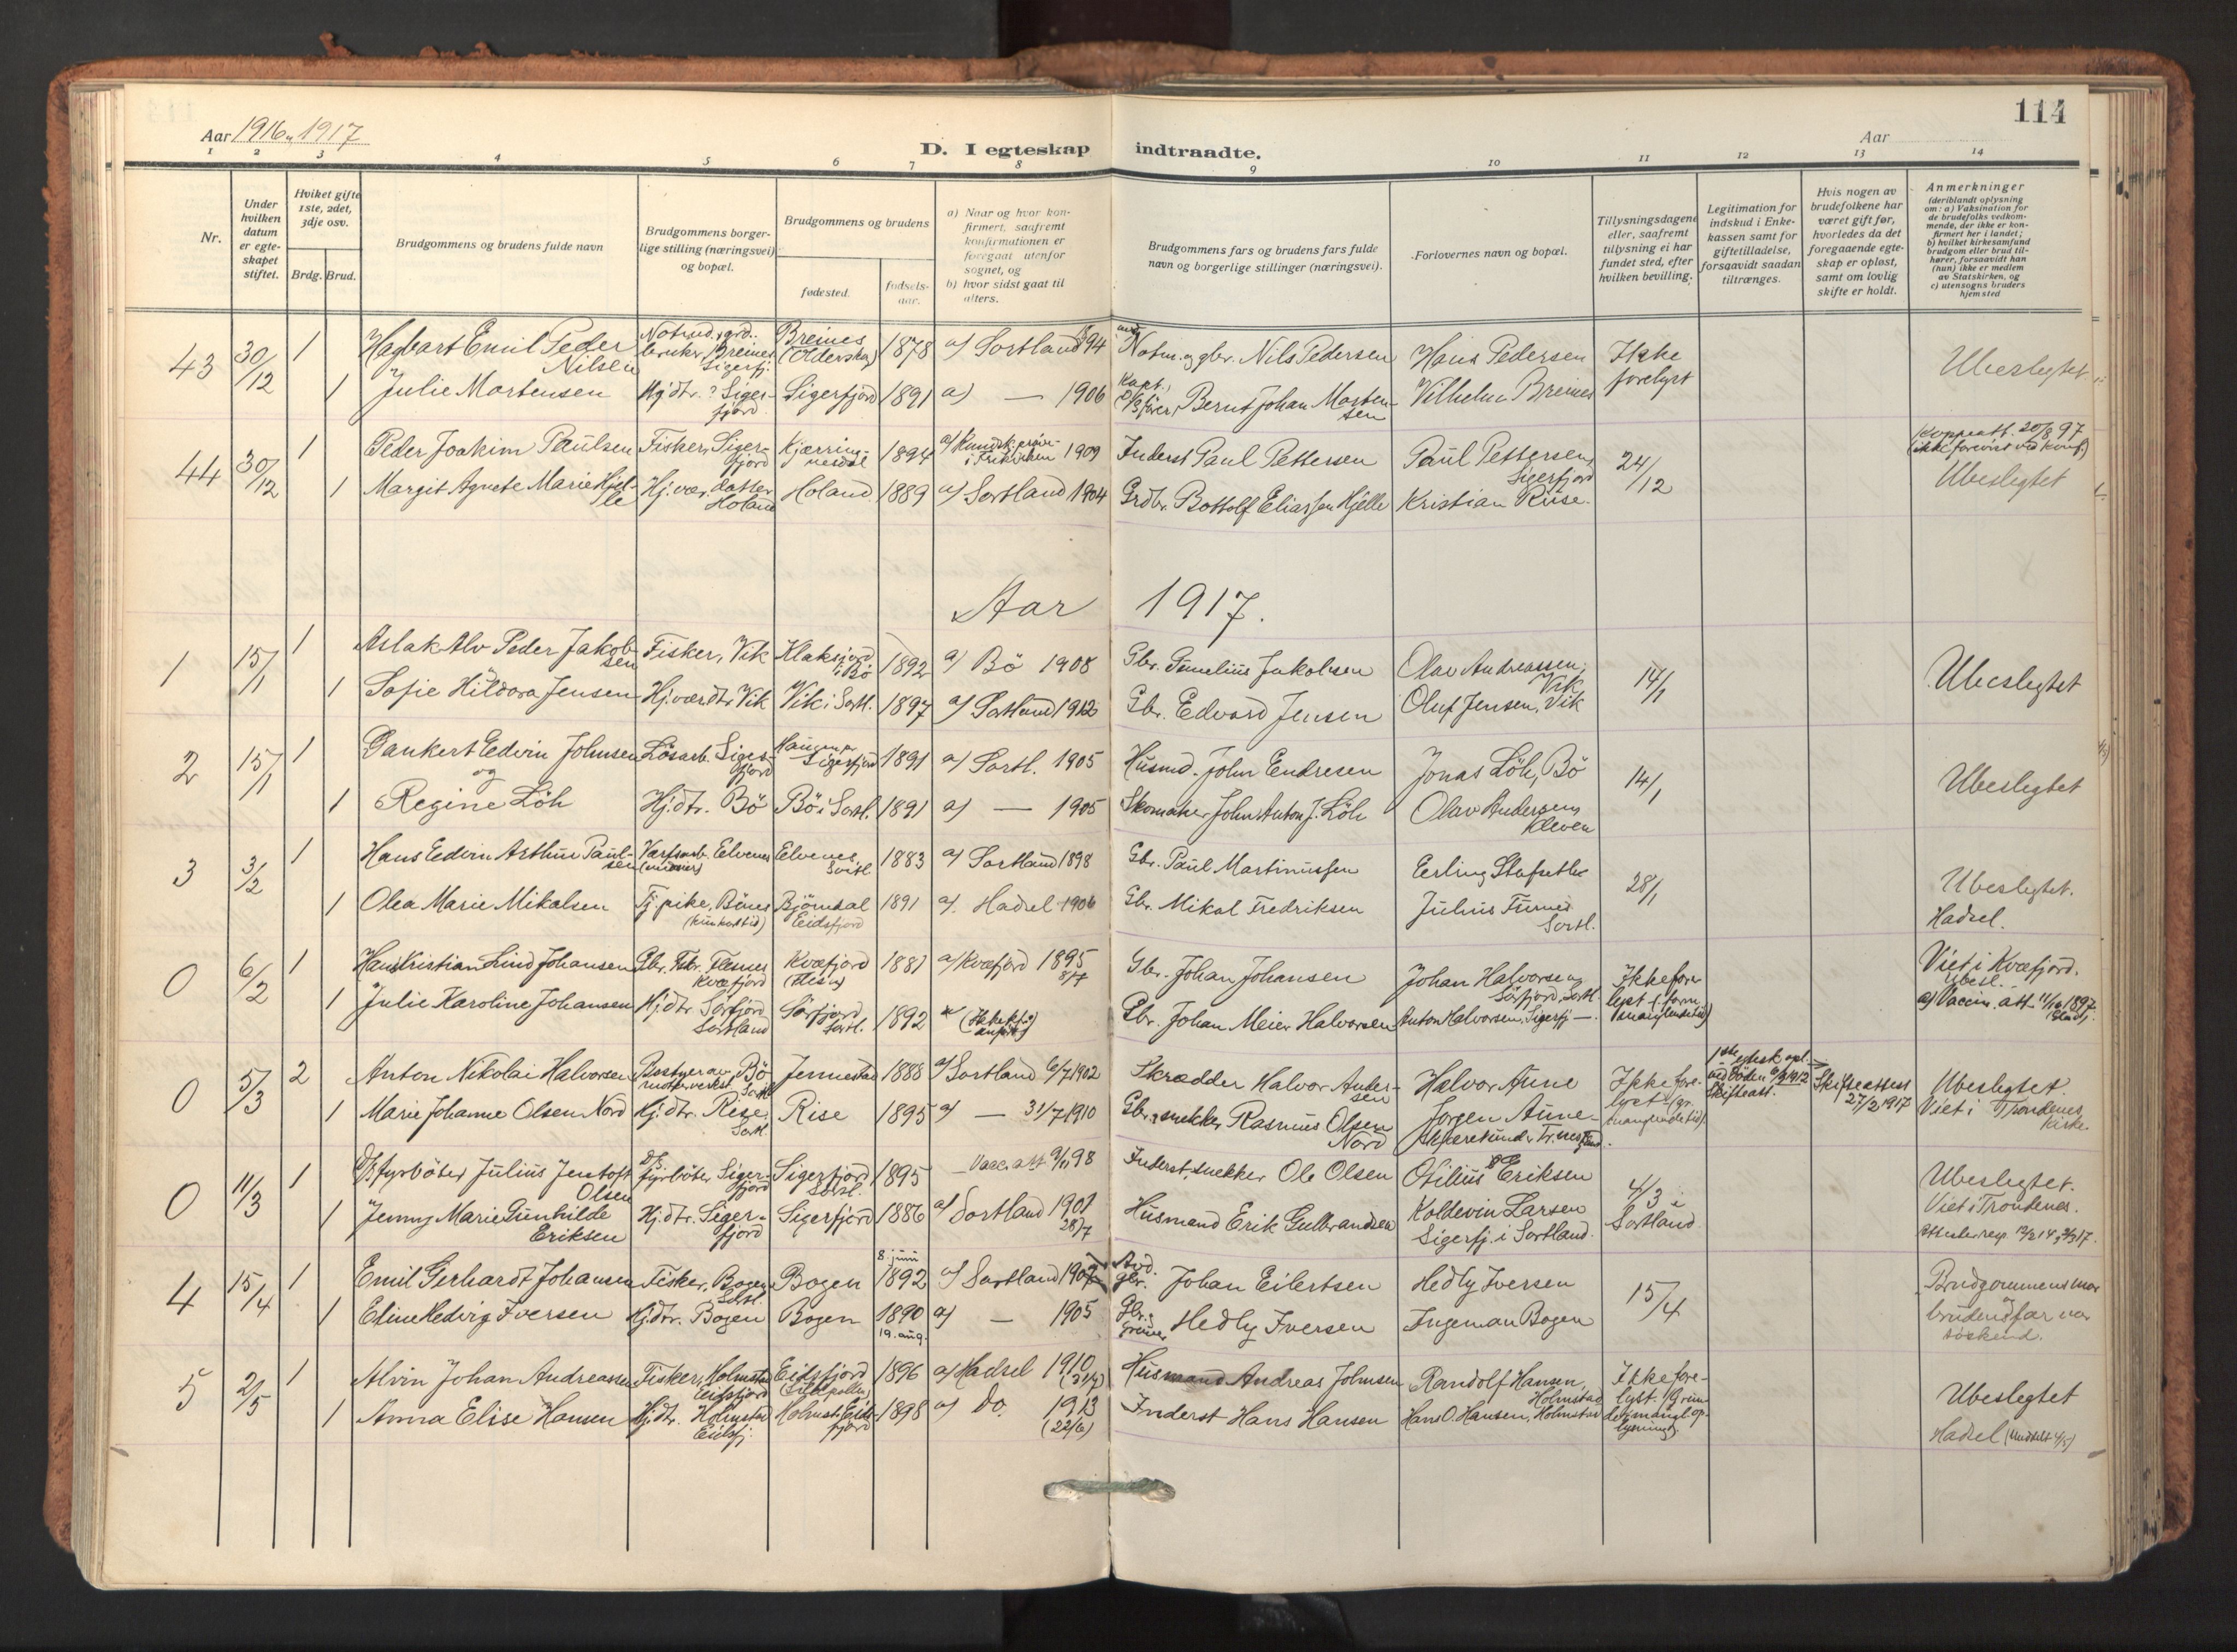 114
Aar 1916 „ 1917
D. I egteskap indtraadte.
Aar
1 2 3 4 5 6 7 8 9 10 11 12 13 14
Nr.
Under hvilken datum er egteskapet stiftet.
Hvilket gifte 1ste, 2det, 3dje osv.
Brdg. Brud.
Brudgommens og brudens fulde navn
Brudgommens borgerlige stilling (næringsvei) og bopæl.
Brudgommens og brudens
fødested.
fødselsaar.
a) Naar og hvor konfirmert, saafremt konfirmationen er foregaat utenfor sognet, og
b) hvor sidst gaat til alters.
Brudgommens fars og brudens fars fulde navn og borgerlige stillinger (næringsvei).
Forlovernes navn og bopæl.
Tillysningsdagene eller, saafremt tillysning ei har fundet sted, efter hvilken bevilling.
Legitimation for indskud i Enkekassen samt for giftetilladelse, forsaavidt saadan tiltrænges.
Hvis nogen av brudefolkene har været gift før, hvorledes da det foregaaende egteskap er opløst, samt om lovlig skifte er holdt.
Anmerkninger (deriblandt oplysning om: a) Vaksination for de brudefolks vedkommende, der ikke er konfirmert her i landet; b) hvilket kirkesamfund brudgom eller brud tilhører, forsaavidt han (hun) ikke er medlem av Statskirken, og c) utensogns bruders hjemsted
43 30/12 1 Hagbart Emil Peder Nilsen Breines 1878 a) Sortland 1894 Notm. og gbr. Nils Pedersen Hans Pedersen Ikke forelyst Ubeslegtet
1 Julie Mortensen Hj.dtr. Sigerfjord Sigerfjord 1891 a) — 1906 Bernt Johan Mortensen Vilhelm Breines
44 30/12 1 Peder Joakim Paulsen Fisker, Sigerfjord Kjerringnesdal 1894 i Frikirken 1909 Inderst Paul Pettersen Paul Pettersen, Sigerfjord 24/12 Koppeatt. 20/8 97
1 Margit Agnete Marie Hjelle Hj.vær. datter Holand Holand 1889 a) Sortland 1904 Grdbr. Bottolf Eliassen Hjelle Kristian Ruse. Ubeslegtet
Aar 1917.
1 15/1 1 Aslak Alv Peder Jakobsen Fisker, Vik i Bø 1892 a) Bö 1908 Gbr. Jakobsen Olav Andreassen, Vik 14/1 Ubeslegtet
1 Sofie Hildora Jensen Hj.værdtr. Vik Vik i Sortl. 1897 a) Sortland 1912 Gbr. Edvard Jensen Oluf Jensen, Vik
2 15/1 1 Dankert Edvin Johnsen Lösarb. Sigerfjord Sigerfjord 1891 a) Sortl. 1905 Husmd. John Endresen Jonas Löh, Bö 14/1 Ubeslegtet
og
1 Regine Löh Hj.dtr. Bö Bö i Sortl. 1891 a) — 1905 Skomaker John Anton J. Löh Olav Andersen, Kleven
3 3/2 1 Hans Edvin Arthur Paulsen Elvenes Elvenes Sortl 1883 a) Sortland 1898 Gbr. Paul Martinussen Erling Stefsetb 28/1 Ubeslegtet.
1 Olea Marie Mikalsen Tj.pike, Bönes Björndal Eidsfjord 1891 a). Hadsel 1906 Gbr. Mikal Fredriksen Julius Sortl. Hadsel.
0 6/2 1 Hans Kristian Lind Johansen Gbr. Flesnes Kvæfjord Kvæfjord 1881 a) Kvæfjord 1895 Gbr. Johan Johansen Johan Halvorsen, Sörfjord, Sortl. Ikke forelyst Viet i Kvæfjord. Ubesl.
1 Julie Karoline Johansen Hj.dtr Sörfjord Sortland Sörfjord Sortl. 1892 Gbr. Johan Meier Halvorsen Anton Halvorsen, Sigerfj — a) Vaccin. att.
0 5/3 2 Anton Nikolai Halvorsen Bestyrer av Bö Sortl Jennestad 1888 a) Sortland 6/7 1902 Skrædder Halvor Andersen Halvor Aune Ikke forelyst Skifteatt. Skifteattest 27/2 1917 Ubeslegtet.
1 Marie Johanne Olsen Nord Hj.dtr. Rise, Sortl. Rise 1895 a) — 31/7 1910 Gbr., snekker Rasmus Olsen Nord Jørgen Aune Viet i Trondenes Kirke.
0 11/3 1 D/S fyrböter Julius Jentoft Olsen D/S fyrböter, Sigerfjord Sigerfjord Sortl. 1895 — Vacc. att 9/11 98 Inderst, snekker Ole Olsen Otilius Eriksen 4/3 i Sortland Ubeslegtet.
1 Jenny Marie Gunhilde Eriksen Hj.dtr. Sigerfjord Sigerfjord 1886 a) Sortland 1901 28/7 Husmand Erik Gulbrandsen Koldevin Larsen Sigerfj. i Sortland. Viet i Trondenes.
4 15/4 1 Emil Gerhardt Johansen Fisker, Bogen Sortl. Bogen 8. juni 1892 a) Sortland 1907 Johan Eilertsen Hedly Iversen 15/4 Brudgommens mor og brudens far var söskend.
1 Eline Hedvig Iversen Hj.dtr. Bogen Bogen 1890 19. aug. a) — 1905 Hedly Iversen Ingeman Bogen
5 2/5 1 Alvin Johan Andreassen Fisker, Holmstad Eidsfjord Eidsfjord 1896 a) Hadsel 1910 Husmand Andreas Johnsen Randolf Hansen, Holmstad Ikke forelyst. Ubeslegtet
1 Anna Elise Hansen Hj.dtr. Holmstad Eidsfj. Holmst. Eidsfjord 1898 a) Do. 1913 (22/6) Inderst Hans Hansen Hans O. Hansen, Holmstad Hadsel